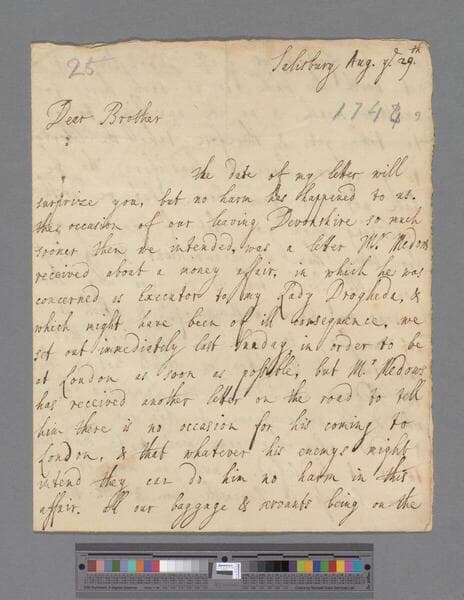 25
Salisbury Aug. ye 29th
1748 9
Dear Brother
the date of my letter will
surprize you, but no harm has happened to us.
the occasion of our leaving Devonshire so much
sooner then we intended, was a letter Mr Medows
received about a money affair, in which he was
concerned as Executor to my Lady Drogheda, &
which might have been of ill consequence, we
set out immediately last Sunday, in order to be
at London as soon as possible, but Mr Medows
has received another letter on the road to tell
him there is no occasion for his coming to
London, & that whatever his enemys might
intend they can do him no harm in this
affair. all our baggage & servants being on the